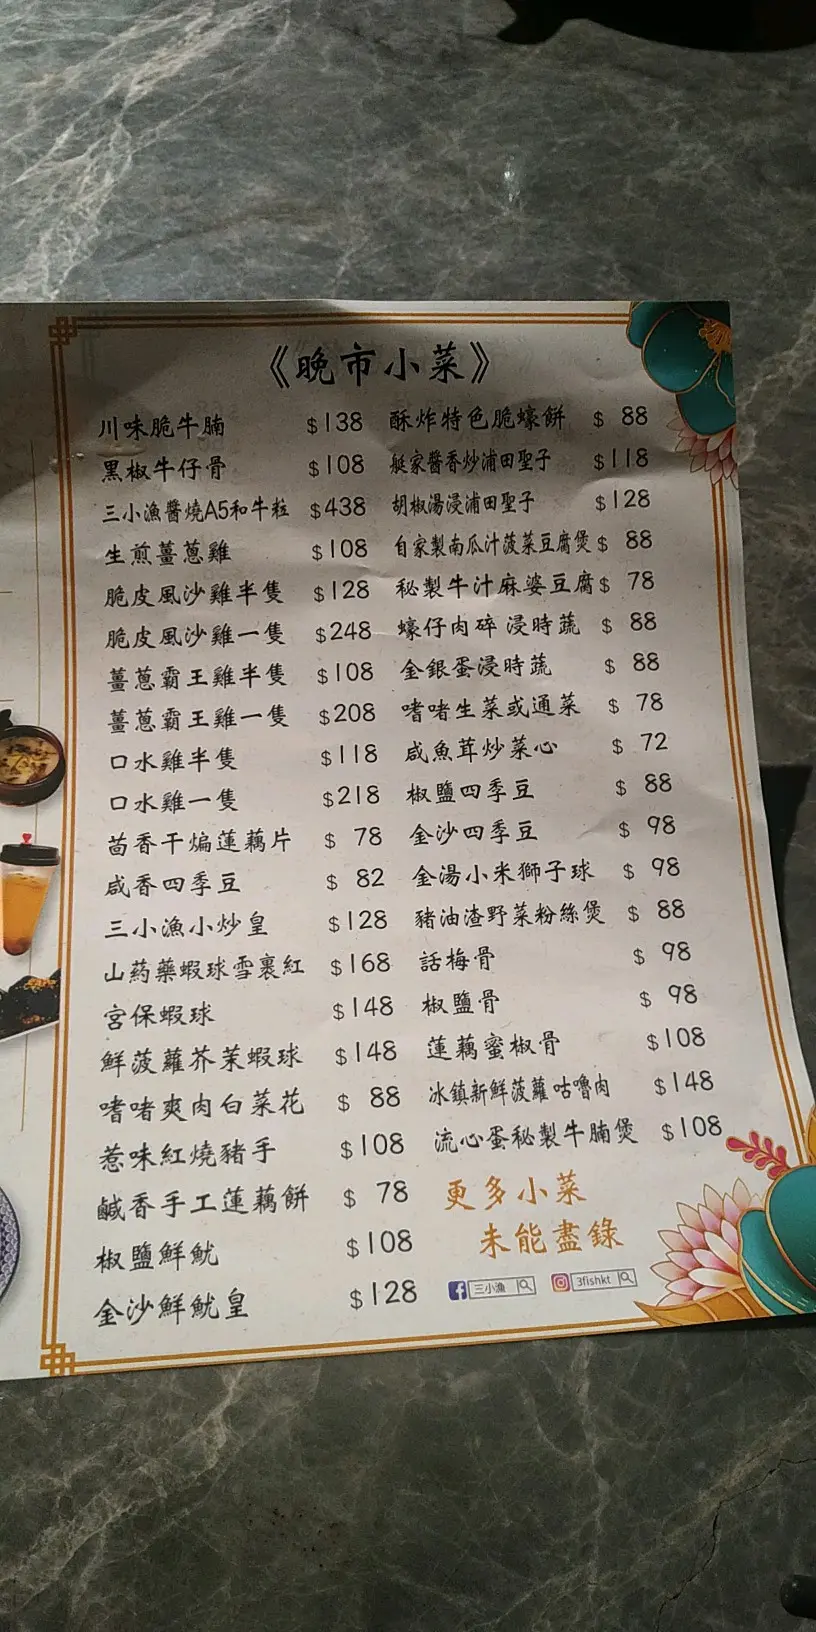 《晚市小菜》
川味脆牛腩 $138
黑椒牛仔骨 $108
三小漁醬燒A5和牛粒 $438
生煎薑蔥雞 $108
脆皮風沙雞半隻 $128
脆皮風沙雞一隻 $248
薑蔥霸王雞半隻 $108
薑蔥霸王雞一隻 $208
口水雞半隻 $118
口水雞一隻 $218
茴香干煸蓮藕片 $ 78
咸香四季豆 $ 82
三小漁小炒皇 $128
山药藥蝦球雪裏紅 $168
宮保蝦球 $148
鮮菠蘿芥茉蝦球 $148
嗜啫爽肉白菜花 $ 88
惹味紅燒豬手 $108
鹹香手工蓮藕餅 $ 78
椒鹽鮮魷 $108
金沙鮮魷皇 $128
酥炸特色脆蠔餅 $ 88
艇家醬香炒浦田聖子 $118
胡椒湯浸浦田聖子 $128
自家製南瓜汁菠菜豆腐煲 $ 88
秘製牛汁麻婆豆腐 $ 78
蠔仔肉碎浸時蔬 $ 88
金銀蛋浸時蔬 $ 88
嗜啫生菜或通菜 $ 78
咸魚茸炒菜心 $ 72
椒鹽四季豆 $ 88
金沙四季豆 $ 98
金湯小米獅子球 $ 98
豬油渣野菜粉絲煲 $ 88
話梅骨 $ 98
椒鹽骨 $ 98
蓮藕蜜椒骨 $108
冰鎮新鮮菠蘿咕嚕肉 $148
流心蛋秘製牛腩煲 $108
更多小菜
未能盡錄
三小漁 3fishkt